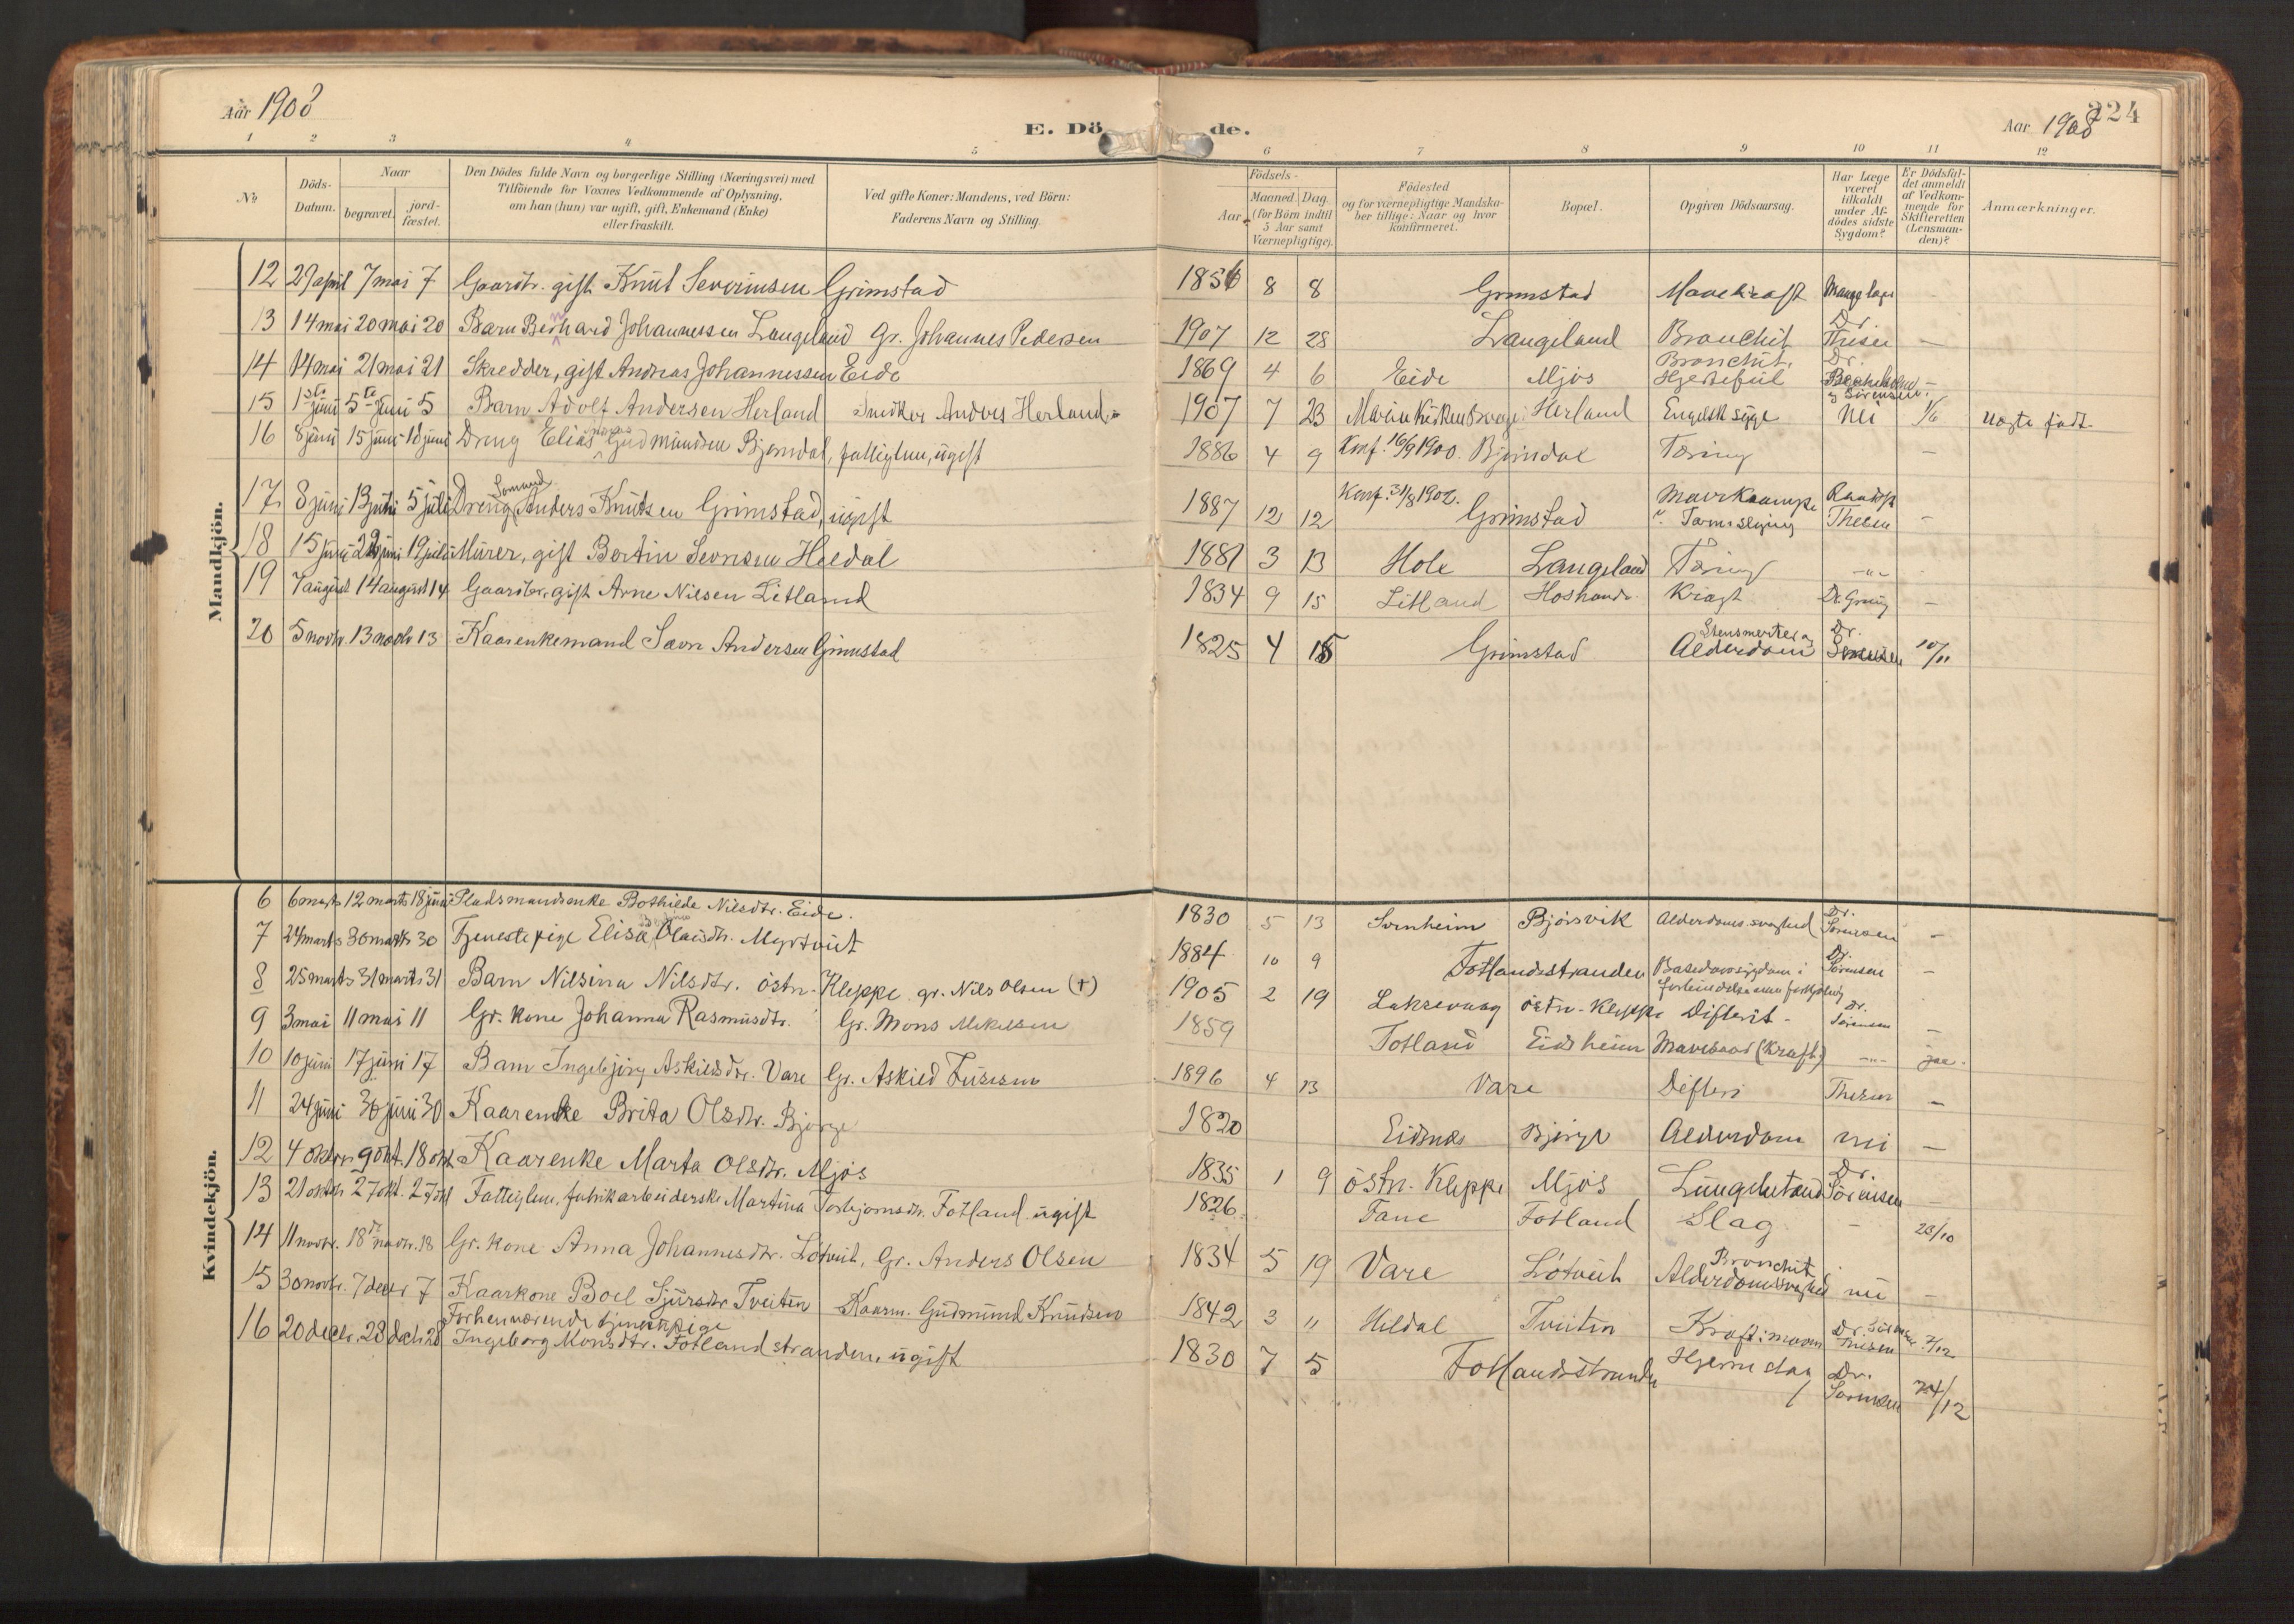 Aar 1908
E. Dö de.
Aar 1908
224
1 2 3 4 5 6 7 8 9 10 11 12
No
Döds-Datum.
Naar
begravet.
jord-fæstet.
Den Dödes fulde Navn og borgerlige Stilling (Næringsvei) med
Tilföiende for Voxnes Vedkommende af Oplysning,
om han (hun) var ugift, gift, Enkemand (Enke)
eller fraskilt.
Ved gifte Koner: Mandens, ved Börn:
Faderens Navn og Stilling.
Födsels-
Aar
Maaned. Dag.
(for Börn indtil
5 Aar samt
Værnepligtige).
Födested
og for værnepligtige Mandska-
ber tillige: Naar og hvor
konfirmeret.
Bopæl.
Opgiven Dödsaarsag.
Har Læge
været
tilkaldt
under Af-
dödes sidste
Sygdom?
Er Dödsfal-
det anmeldt
af Vedkom-
mende for
Skifteretten
(Lensman-
den)?
Anmærkninger.
Mandkjön.
12 27 april 7 mai 7 Gaardbr. gift Knut Severinsen Grimstad 1856 8 8 Grimstad Mavekræft Mange læger -
13 14 mai 20 mai 20 Barn Bernhard Johannessen Langeland Gr. Johannes Pedersen 1907 12 28 Langeland Bronchit Dr. Thesen -
14 14 mai 21 mai 21 Skredder, gift Andreas Johannessen Eide 1869 4 6 Eide Mjøs Bronchit, Hjertefeil Dr. og Sørensen -
15 1ste juni 5te juni 5 Barn Adolf Andersen Herland Snidker Anders Herland 1907 7 23 Herland Engelsk syge Nei 1/6 uegte født
16 8 juni 15 juni 18 juni Dreng Elias Gudmundsen Bjørndal, fattiglem, ugift 1886 4 9 Konf. 16/9 1900. Bjørndal Tæring -
17 8 juni 13 juni 5 juli Dreng, Sømand Anders Knutsen Grimstad, ugift 1887 12 12 Konf. 31/8 1902. Grimstad Mavekrampe Thesen -
18 15 juni 22 juni 19 juli Murer, gift Bertin Heldal 1881 3 13 Hole Langeland Tæring -"-
19 7 august 14 august 14 Gaardbr. gift Arne Nilsen Litland 1834 9 15 Litland Kræft Dr. -
20 5 novbr. 13 novbr 13 Kaarenkemand Sævr Andersen Grimstad 1825 4 15 Grimstad Alderdom Dr. Sørensen 10/11
Kvindekjön.
6 6 marts 12 marts 18 juni Pladsmandsenke Bothilde Nilsdtr. Eide. 1830 5 13 Bjørsvik Alderdoms svaghed Dr. Sørensen -
7 24 marts 30 marts 30 Tjenestepige Elisa Olaisdtr. Myrtveit 1884 10 9 Fotlandsstranden Basedowsygdom i Dr. Sørensen -
8 25 marts 31 marts 31 Barn Nilsina Nilsdtr. østn. Kleppe gr. Nils Olsen (†) 1905 2 19 Laksevaag østn. Kleppe Difterit Dr. Sørensen -
9 3 mai 11 mai 11 Gr. kone Johanna Rasmusdtr. Gr. Mons Mikelsen 1859 Totland Eidsheim Mavesaar (Kræft) -"- jae.
10 10 juni 17 juni 17 Barn Ingebjørg Askildsdtr. Vare Gr. Askild 1896 4 13 Vare Difteri Thesen -
11 24 juni 30 juni 30 Kaarenke Brita Olsdtr. Bjørge 1820 Eidsnes Bjørge Alderdom nei -
12 4 oktbr. 9 okt. 18 okt. Kaarenke Marta Olsdtr. Mjøs 1835 1 9 østn. Kleppe Mjøs Lungebetænd Dr. Sørensen -
13 21 oktbr 27 okt. 27 okt Fattiglem, fabrikarbeiderske Martina Torbjørnsdtr. Fotland ugift 1826 Fane Fotland Slag - 23/10
14 11 novbr. 18de novbr. 18 Gr. kone Anna Johannesdtr. Løtveit, Gr. Anders Olsen 1834 5 19 Vare Løtveit Bronchit Alderdomssvaghed nei -
15 30 novbr. 7 decbr 7 Kaarkone Boel Sjursdtr Tveiten Kaarm. Gudmund Knudsen 1842 3 11 Heldal Tveiten Kræft i maven Dr. Thesen 7/12
16 20 decbr. 28 decbr. 28 Forhenværende tjenestepige
Ingeborg Monsdtr. Fotlandstranden, ugift 1830 7 5 Fotlandsstranden Hjerneslag Dr. Sørensen 24/12